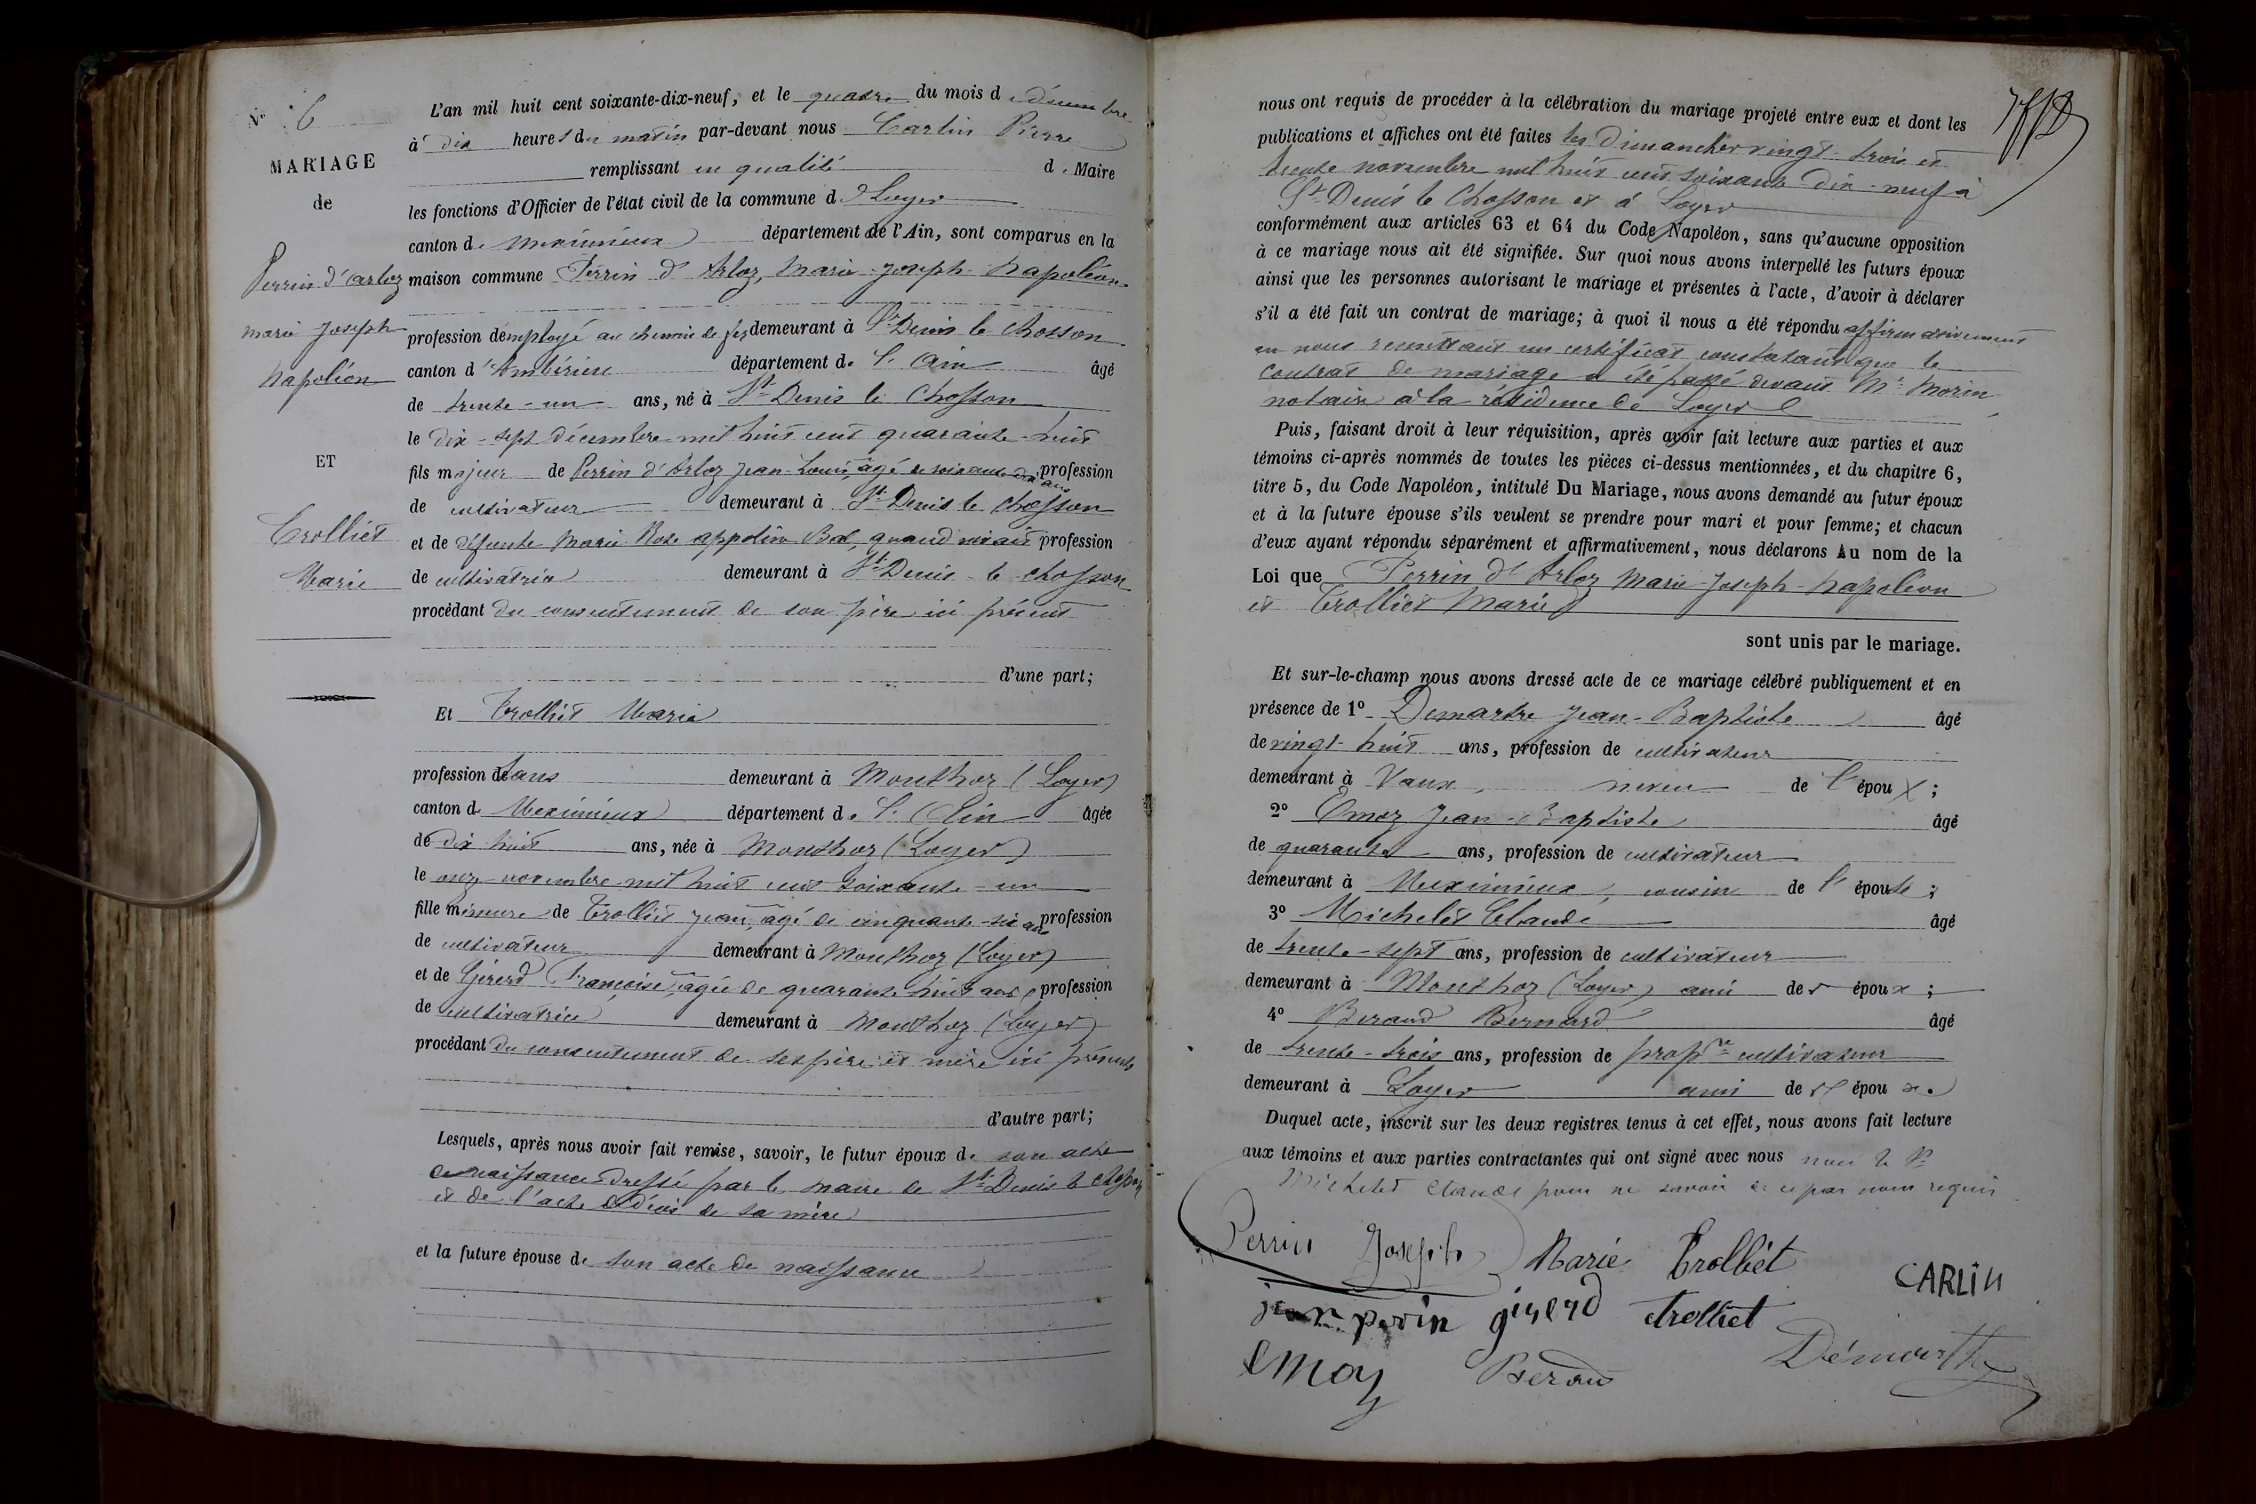 N° 6
MARIAGE
de
Perrin d'arloz
marie Joseph
Napoléon
ET
Trolliet
Marie
L'an mil huit cent soixante-dix-neuf, et le quatre du mois de décembre
à dix heures du matin par-devant nous Carlin Pierre
remplissant en qualité de Maire
les fonctions d'Officier de l'état civil de la commune de Loyes
canton de Meximieux département de l'Ain, sont comparus en la
maison commune Perrin d'Arloz, Marie-Joseph-Napoléon
profession d'employé au chemin de fer demeurant à St Denis le Chosson
canton d'Ambérieu département de l'Ain âgé
de trente-un ans, né à St Denis le Chosson
le dix-sept décembre mil huit cent quarante-huit
fils majeur de Perrin d'Arloz Jean-Louis, âgé de soixante dix ans profession
de cultivateur demeurant à St Denis le Chosson
et de défunte Marie Rose appoline Bal, quand vivait profession
de cultivatrice demeurant à St Denis-le-chosson
procédant du consentement de son père ici présent
d'une part;
Et Trolliet Marie
profession de sans demeurant à Monthoz (Loyes)
canton de Meximieux département de l'Ain âgée
de dix huit ans, née à Monthoz (Loyes)
le onze novembre mil huit cent soixante-un
fille mineure de Trolliet Jean, agé de cinquante-six ans profession
de cultivateur demeurant à Monthoz (Loyes)
et de Girerd Françoise, agée de quarante-huit ans profession
de cultivatrice demeurant à Monthoz (Loyes)
procédant du consentement de ses père et mère ici présents
d'autre part;
Lesquels, après nous avoir fait remise, savoir, le futur époux de son acte
de naissance dressé par le maire de St Denis le Chosson
et de l'acte de décès de sa mère
et la future épouse de son acte de naissance
nous ont requis de procéder à la célébration du mariage projeté entre eux et dont les
publications et affiches ont été faites les Dimanches vingt-trois et
trente novembre mil huit cent soixante-dix-neuf à
St Denis le Chosson et à Loyes
conformément aux articles 63 et 64 du Code Napoléon, sans qu'aucune opposition
à ce mariage nous ait été signifiée. Sur quoi nous avons interpellé les futurs époux
ainsi que les personnes autorisant le mariage et présentes à l'acte, d'avoir à déclarer
s'il a été fait un contrat de mariage; à quoi il nous a été répondu affirmativement
en nous remettant un certificat constatant que le
contrat de mariage a été passé devant Mr Morin
notaire à la résidence de Loyes
Puis, faisant droit à leur réquisition, après avoir fait lecture aux parties et aux
témoins ci-après nommés de toutes les pièces ci-dessus mentionnées, et du chapitre 6,
titre 5, du Code Napoléon, intitulé Du Mariage, nous avons demandé au futur époux
et à la future épouse s'ils veulent se prendre pour mari et pour femme; et chacun
d'eux ayant répondu séparément et affirmativement, nous déclarons Au nom de la
Loi que Perrin d'Arloz Marie-Joseph-Napoléon
et Trolliet Marie
sont unis par le mariage.
Et sur-le-champ nous avons dressé acte de ce mariage célébré publiquement et en
présence de 1° Demartre Jean-Baptiste âgé
de vingt-huit ans, profession de cultivateur
demeurant à Vaux, neveu de l'époux;
2° Emoz Jean-Baptiste âgé
de quarante ans, profession de cultivateur
demeurant à Meximieux, cousin de l'épouse;
3° Michelet Claude âgé
de trente-sept ans, profession de cultivateur
demeurant à Monthoz (Loyes) ami des époux;
4° Beraud Bernard âgé
de trente-trois ans, profession de propre cultivateur
demeurant à Loyes ami des époux.
Duquel acte, inscrit sur les deux registres tenus à cet effet, nous avons fait lecture
aux témoins et aux parties contractantes qui ont signé avec nous non le Sr
Michelet Claude pour ne savoir de ce par nous requis
Perrin Joseph Marie Trolliet
CARLIN
jean perin girerd trolliet
emoz Beraud